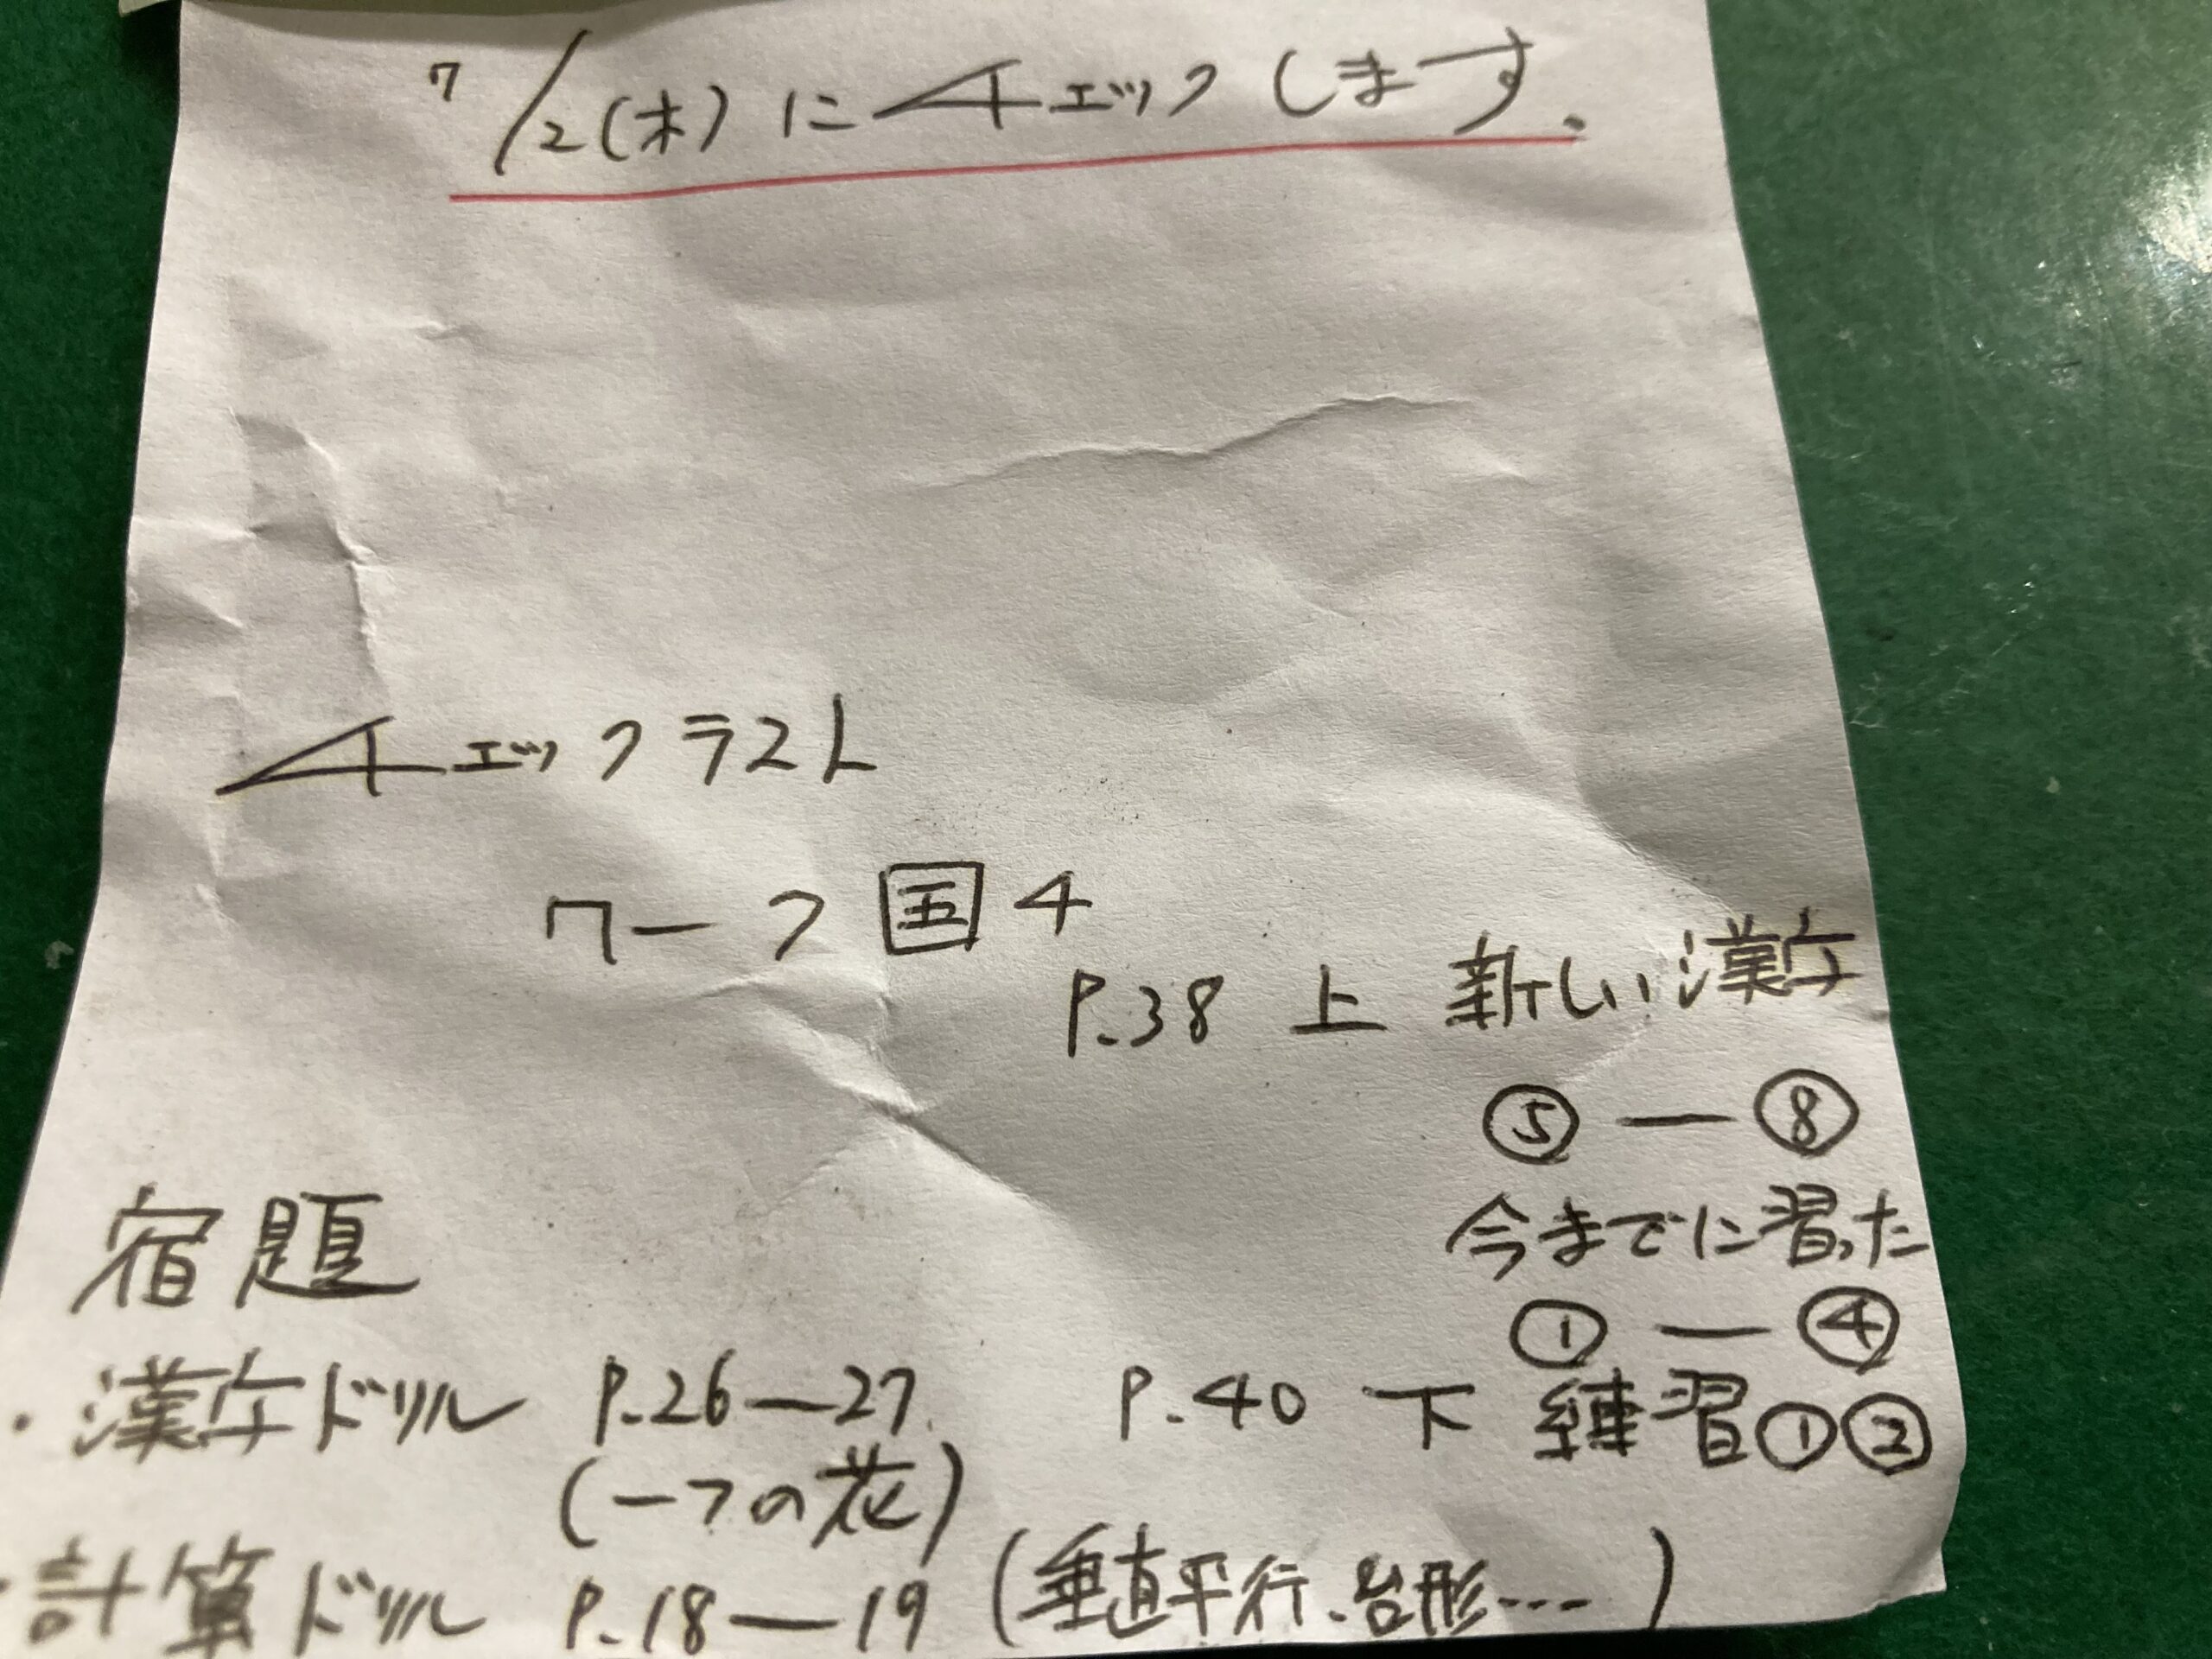 7/2(木)にチェックします。
チェックテスト
ワーク国4
P.38 上 新しい漢字
⑤ー⑧
今までに習った
①ー④
P.40 下 練習①②
宿題
・漢字ドリル P.26ー27
(一つの花)
・計算ドリル P.18ー19 (垂直平行、台形…)